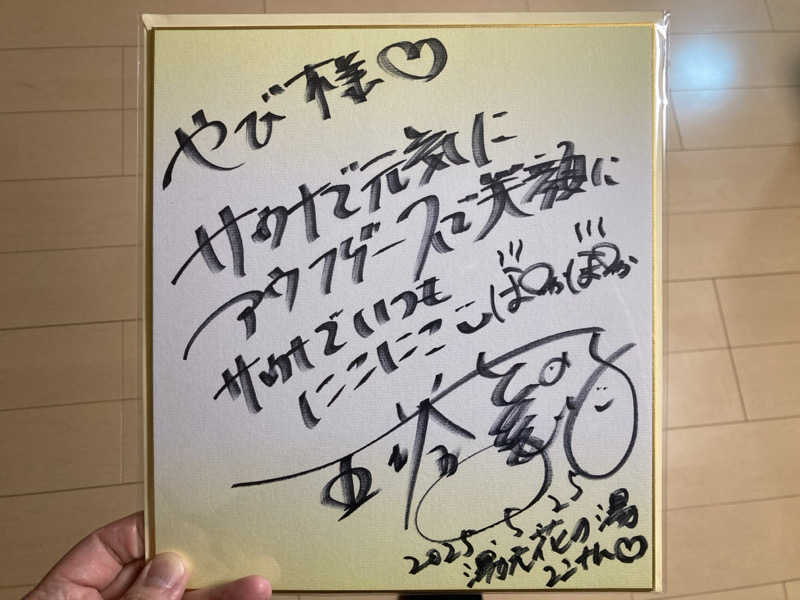 やび様♡
サウナで元気に
アウフグースで笑顔に
サウナでいつも
にこにこ ぽかぽか
2025.5.25
花の湯